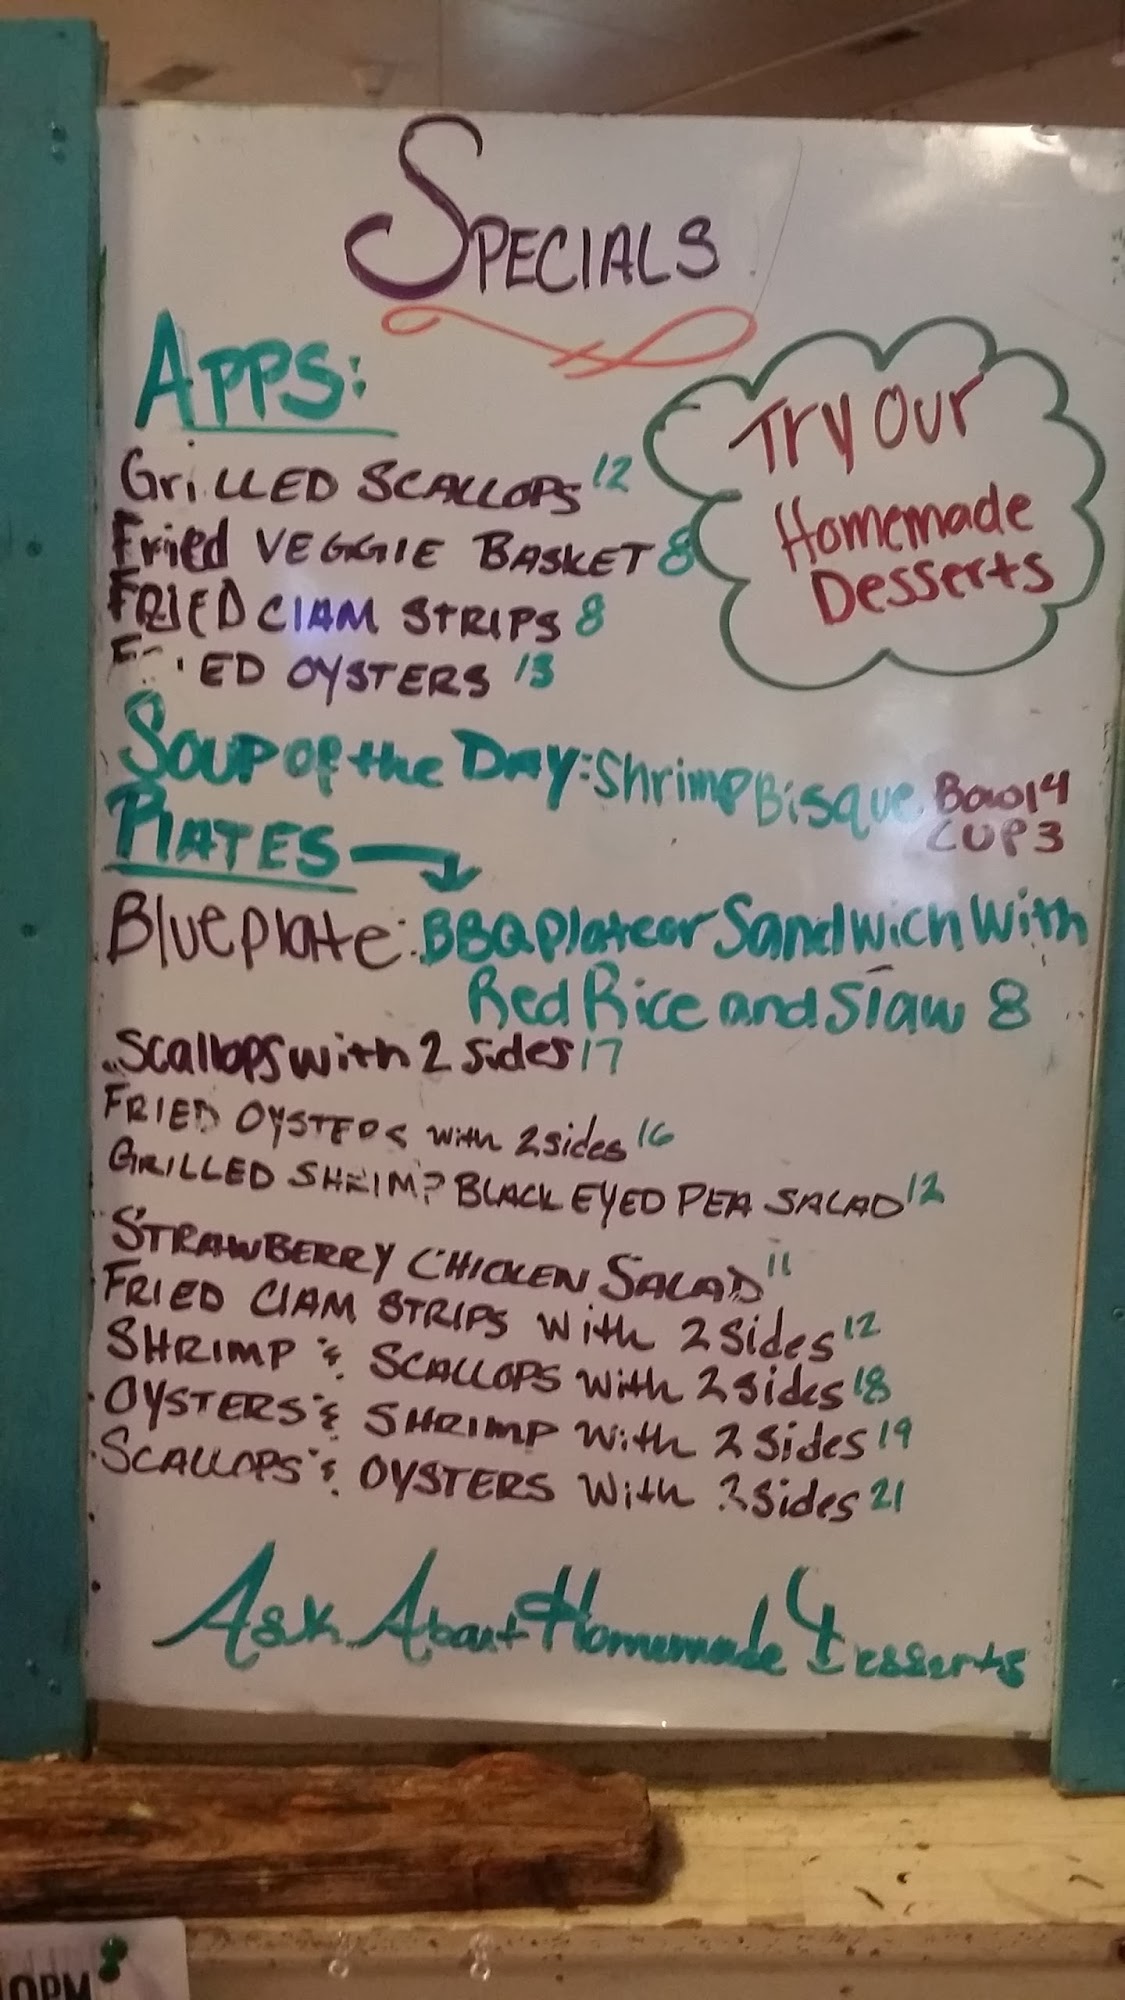 SPECIALS
APPS:
GriLLED SCALLOPS 12
Fried VEGGIE BASKET 8
FRIED ClAM STRIPS 8
FRIED OYSTERS 13
Try Our
Homemade
Desserts
Soup of the Day: Shrimp Bisque Bowl 4
CUP 3
PlATES
Blue plate: BBQ Plate or Sandwich With
Red Rice and Slaw 8
Scallops with 2 Sides 17
FRIED OYSTERS with 2 sides 16
GRILLED SHRIMP BLACK EYED PEA SALAD 12
STRAWBERRY CHICKEN SALAD 11
FRIED ClAM STRIPS With 2 Sides 12
SHRIMP & SCALLOPS with 2 sides 18
OYSTERS & SHRIMP With 2 Sides 19
SCALLOPS & OYSTERS With 2 Sides 21
Ask About Homemade Desserts
0PM